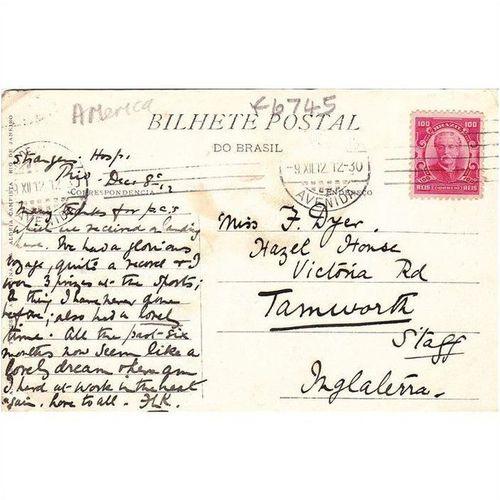 America
£6745
BILHETE POSTAL
DO BRASIL
Strangers Hosp.
Rio Dec. 8th
12
CORRESPONDENCIA
ENDEREÇO
-9 XII 12 12-30
AVENIDA
XII 12 12
AVENIDA
RIO DE JANEIRO
100 BRAZIL 100
REIS CORREIO REIS
Many thanks for p.c.s
which we received on landing
here. We had a glorious
voyage, quite a record & I
won 3 prizes at the Sports;
a thing I have never done
before; also had a lovely
time. All the past six
months now seem like a
lovely dream & here am
I hard at work in the heat
again. Love to all. FLK.
Miss F. Dyer.
Hazel House
Victoria Rd
Tamworth
Staff
Inglaterra.